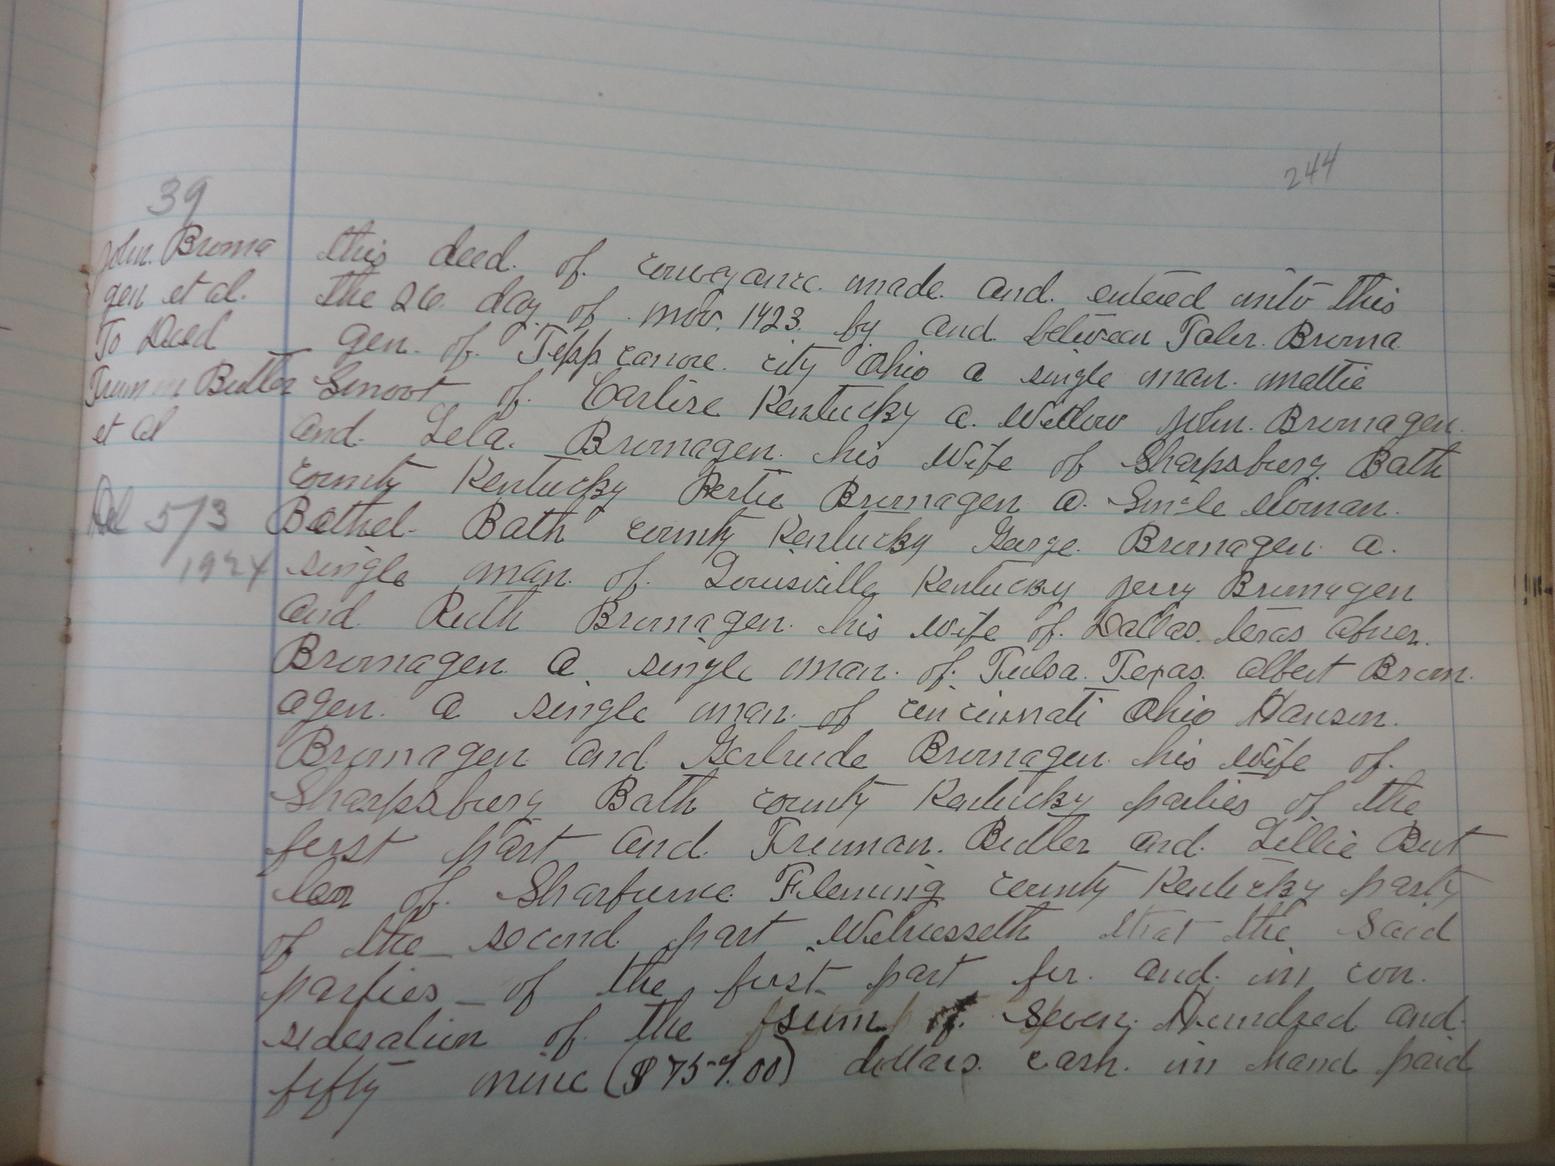 244
39
John. Broma
gen et al.
To Deed
Truman Butler
et al
Del 5/3
1924
this deed. of. conveyance. made. and. entered into this
the 26. day of. Nov. 1923. by and. between Taler. Broma
gen. of. Tippecanoe. city Ohio a single man. Mattie
Smoot of. Carlise Kentucky a. Widow John. Bromagen.
and. Lela. Bromagen. his Wife of Sharpsburg Bath
county Kentucky Bertie Bromagen a. Single Woman.
Bethel. Bath county Kentucky George. Bromagen. a.
single man. of. Louisville Kentucky Jerry Bromagen
and Ruth Bromagen. his wife of. Dallas. Texas Abner.
Bromagen a. single man. of. Tulsa. Texas. Albert Brom.
agen. a single man. of cincinnati Ohio Hansen.
Bromagen and Gertrude Bromagen. his Wife of.
Sharpsburg Bath county Kentucky parties of the
first part and. Truman. Butler and. Lillie But
ler of. Sharburne Fleming county Kentucky party
of the second part Witnesseth that the said
parties of the first part for. and. in con.
sideration of the sum of. Seven Hundred and.
fifty nine ($759.00) dollars. cash. in hand paid